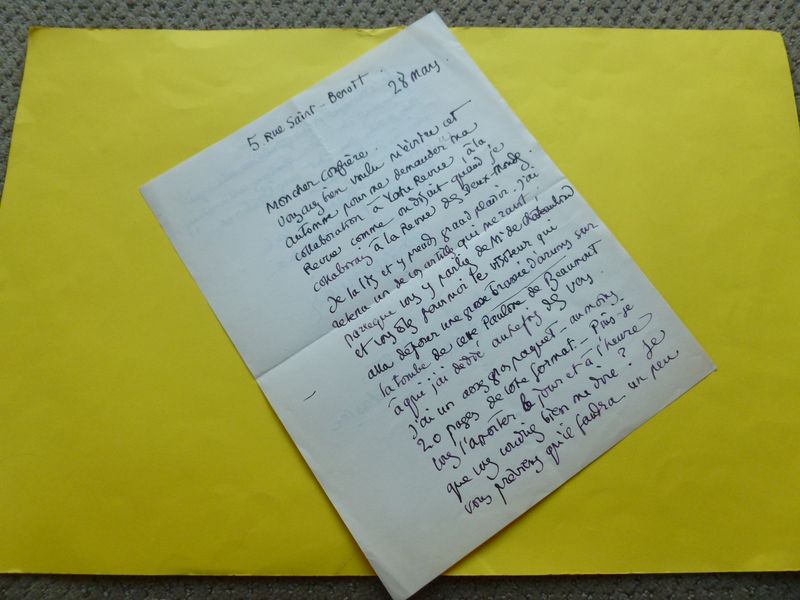 5 Rue Saint-Benoît.
28 mars.
Mon cher Confrère.
Vous avez bien voulu m'écrire cet
automne pour me demander ma
collaboration à Votre Revue "à la
Revue" comme on disait quand je
collaborais à la Revue des Deux-Mondes.
Je la lis et y prends grand plaisir. J'ai
retenu un de vos articles qui me ravit
parceque vous y parliez de Mr de Chateaubriand
et vous êtes pour moi le visiteur qui
alla déposer une grosse brassée d'arums sur
la tombe de cette Pauline de Beaumont
à qui j'ai dédié autrefois des vers.
J'ai un assez gros paquet - au moins
20 pages de votre format - Puis-je
vous l'apporter le jour et à l'heure
que vous voudrez bien me dire? Je
vous préviens qu'il faudra un peu